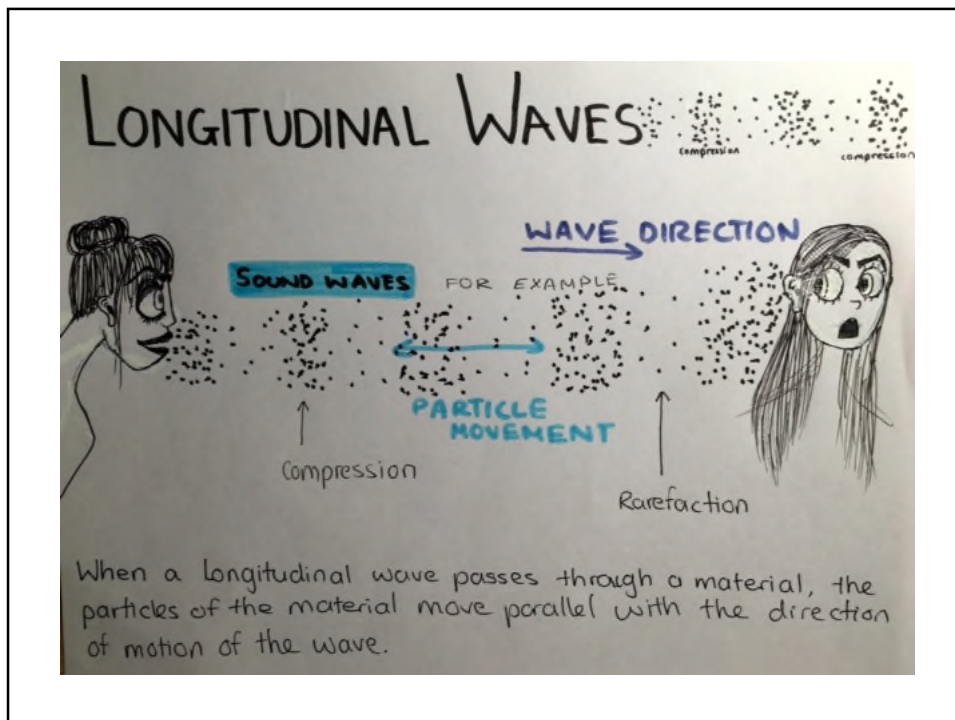 LONGITUDINAL WAVES
compression
compression
WAVE DIRECTION
SOUND WAVES FOR EXAMPLE
PARTICLE
MOVEMENT
Compression
Rarefaction
When a longitudinal wave passes through a material, the
particles of the material move parallel with the direction
of motion of the wave.